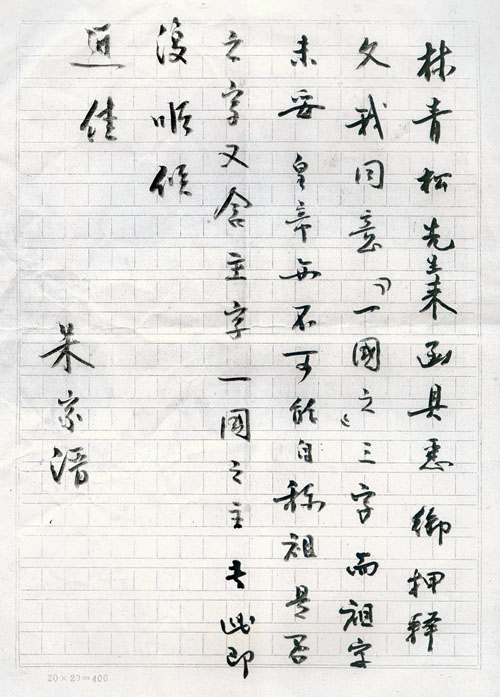 林青松先生来函具悉 御押释
文我同意「一國之」三字而祖字
未妥 皇帝亦不可能自称祖是否
之字又含主字一國之主 专此即
復 顺候
近佳
朱家溍
20×20=400